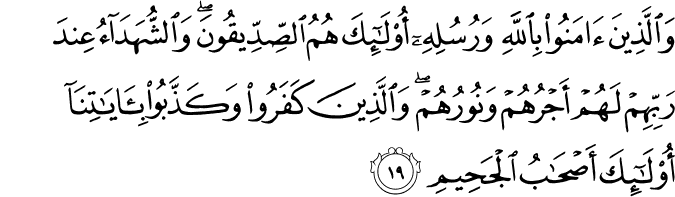 وَٱلَّذِينَ ءَامَنُوا۟ بِٱللَّهِ وَرُسُلِهِۦٓ أُو۟لَـٰٓئِكَ هُمُ ٱلصِّدِّيقُونَ ۖ وَٱلشُّهَدَآءُ عِندَ
رَبِّهِمْ لَهُمْ أَجْرُهُمْ وَنُورُهُمْ ۖ وَٱلَّذِينَ كَفَرُوا۟ وَكَذَّبُوا۟ بِـَٔايَـٰتِنَآ
أُو۟لَـٰٓئِكَ أَصْحَـٰبُ ٱلْجَحِيمِ ١٩